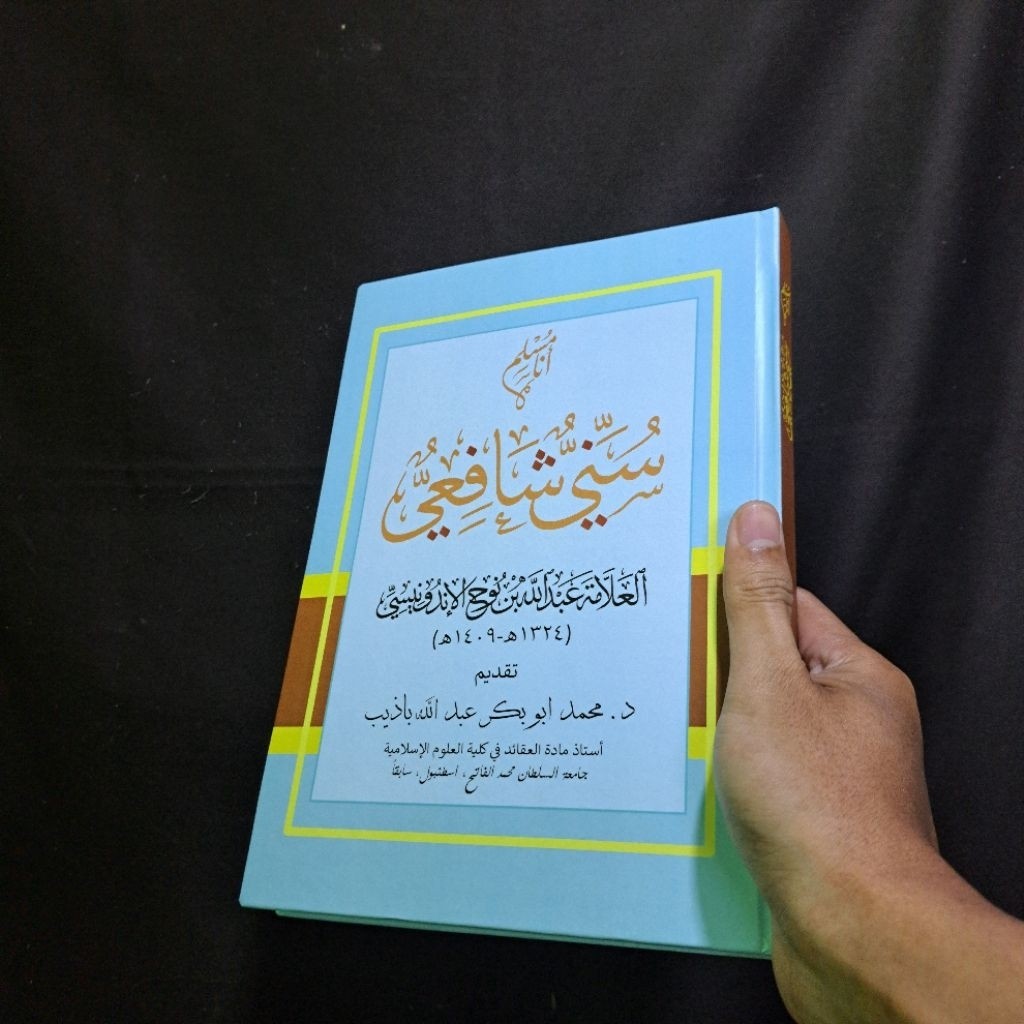 أنا مسلم
سُنِّيٌّ شَافِعِيٌّ
العَلَّامَة عَبْدُ اللَّه بْنُ نُوح الإِنْدُونِيسِيّ
(١٣٢٤هـ-١٤٠٩هـ)
تقديم
د. محمد ابو بكر عبد الله باذيب
أستاذ مادة العقائد في كلية العلوم الإسلامية
جامعة السلطان محمد الفاتح، اسطنبول، سابقاً